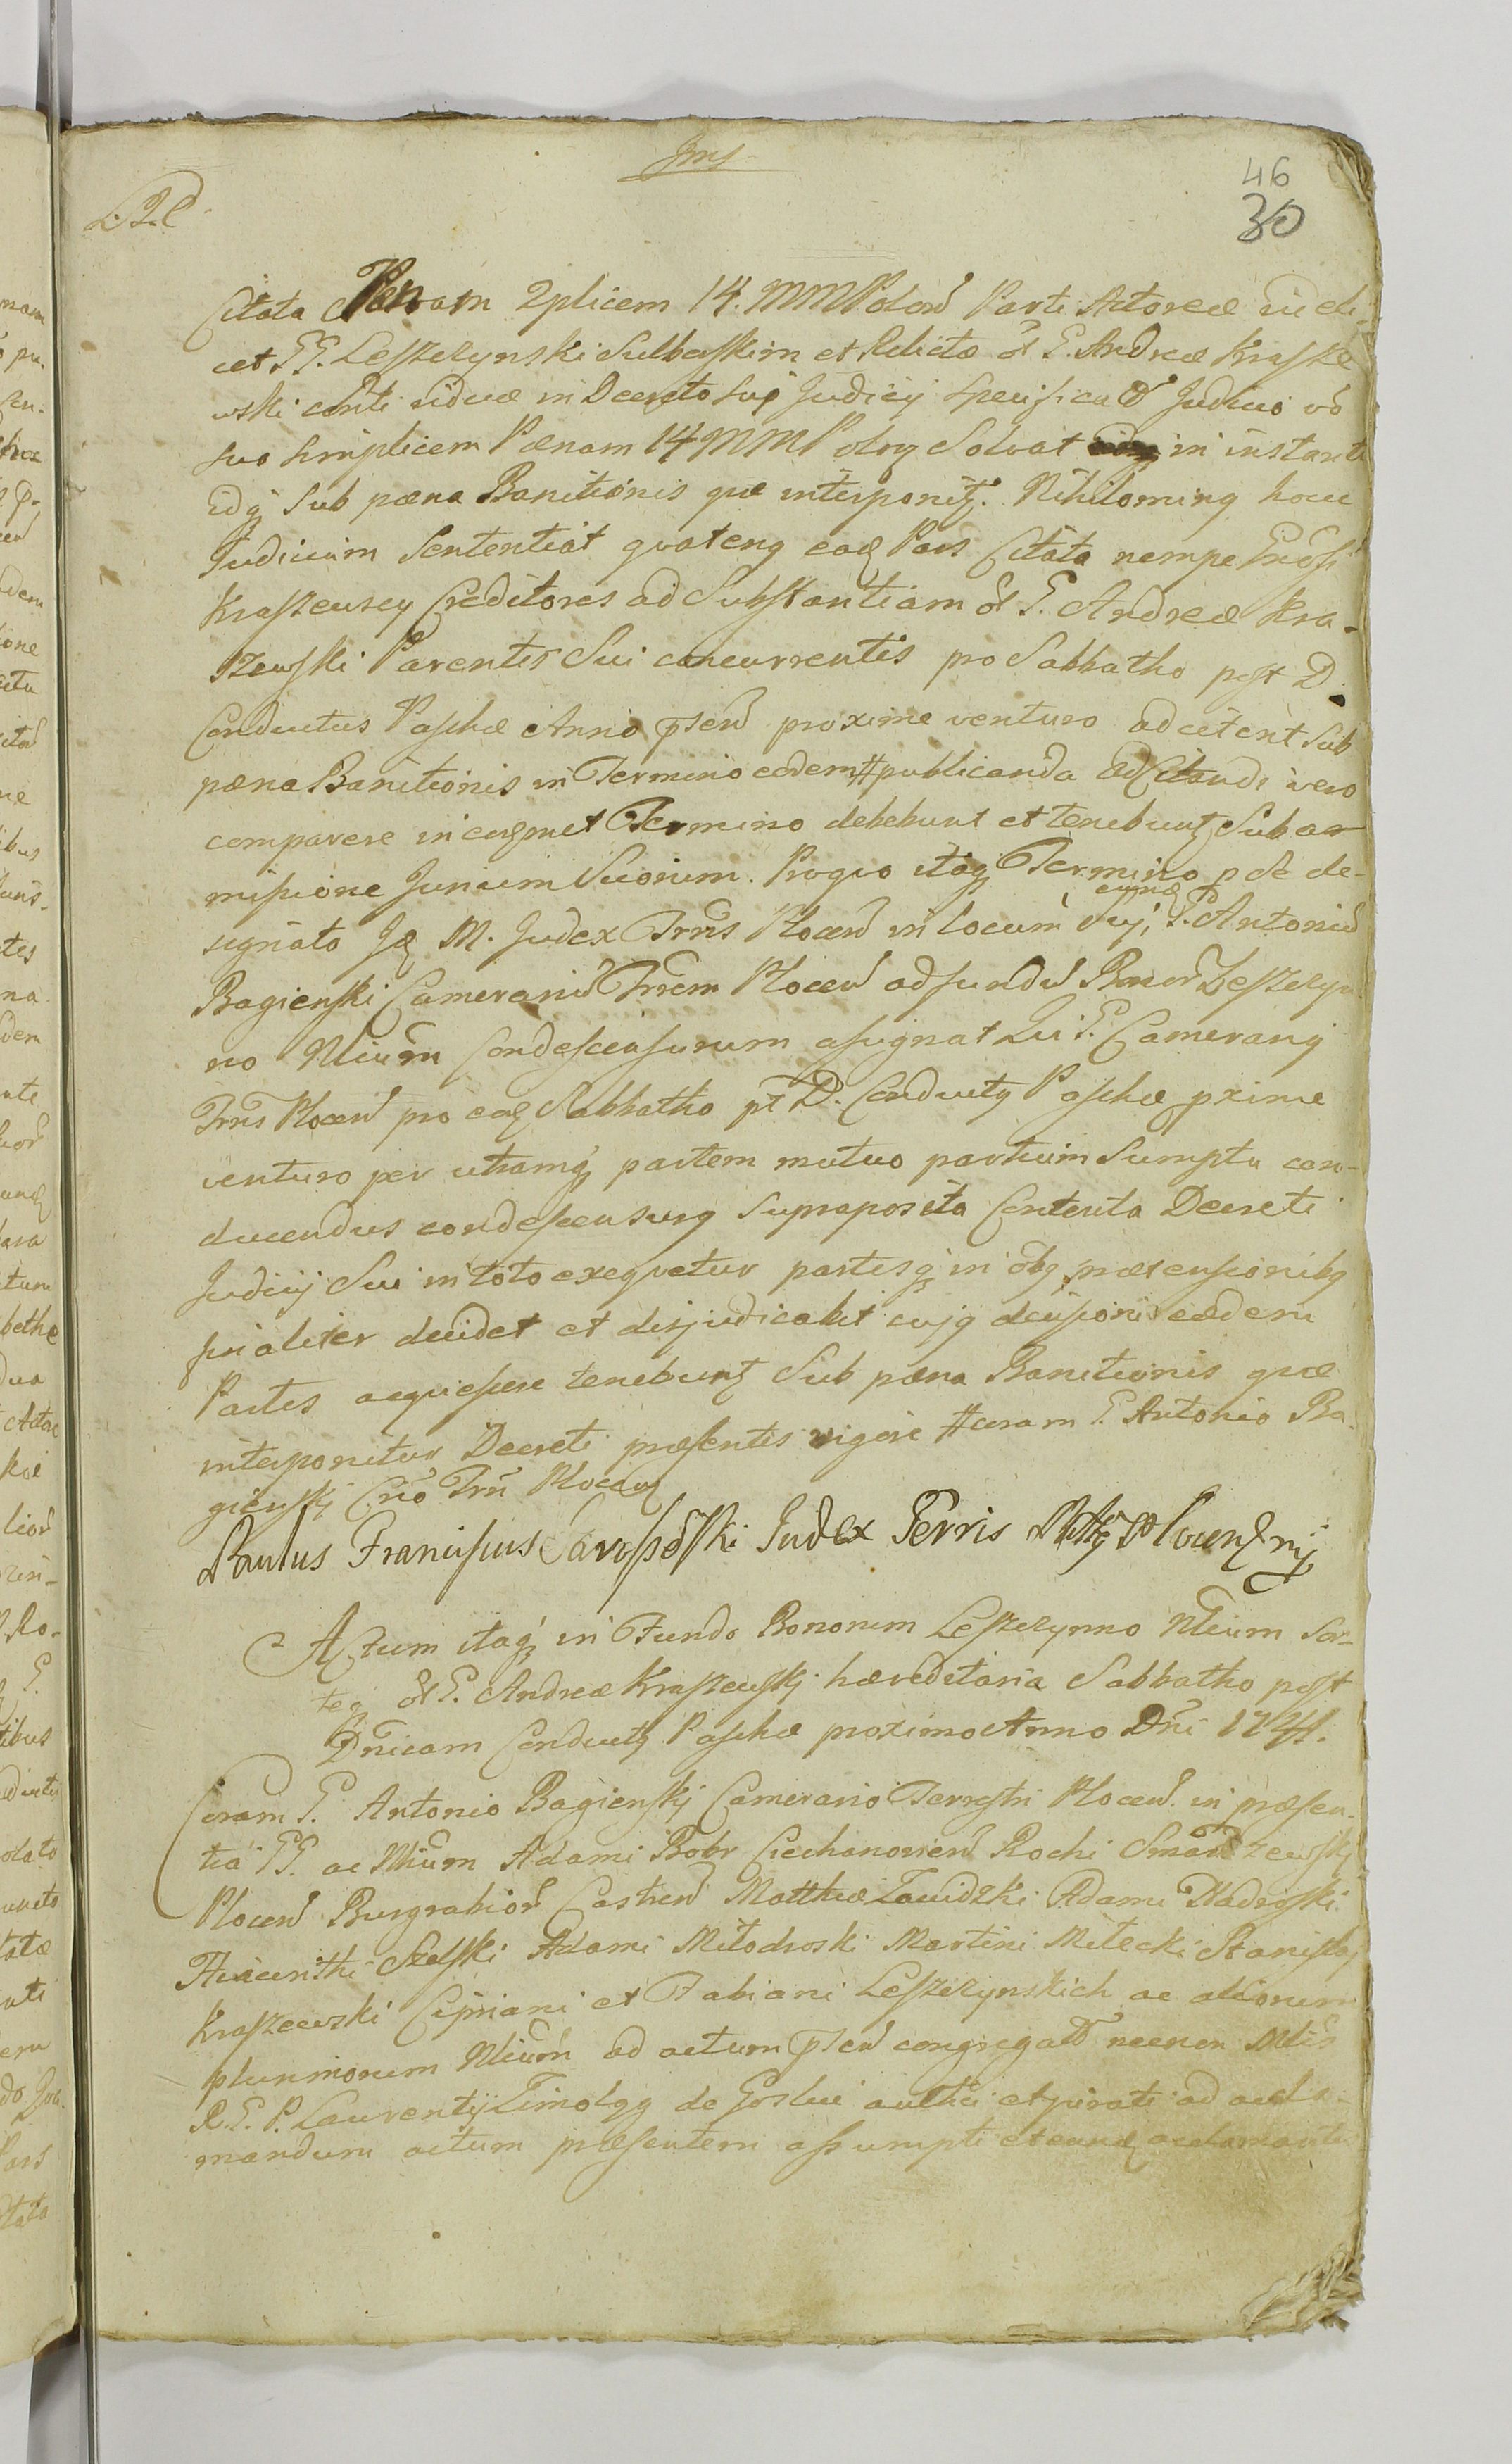 46
30
Citata Paenam 2plicem 14. MM Polon Parti Actoreæ videli-
cet GG. Leszczynski Sulberskim et Relictæ ol G. Andreæ Krasze
wski viduæ in Decreto sui Judicij specificat Judicio vo
suo simplicem Pænam 14 MM Polon Solvat in instanti
idq Sub pæna Banitionis quæ interponitz. Nihilominq hocce
Judicium Sententiat quatenq eadz Pars Citata nempe
Kraszewscy Creditores ad Substantiam ol G. Andreæ Kra-
szewski Parentis Sui concurrentes pro Sabbatho post D.
Conductus Paschæ Anno psen proxime venturo adcitent sub
pæna Banitionis in Termino eodem # publicanda Adcitandi vero
comparere in eodzmet Termino debebunt et tenebuntz Sub a-
missione Jurium Suorum. Pro quo itaq Termino de-
signato Jdz M. Judex Trris Plocen in locum sui, eundz G. Antoniu
Bagienski Camerariu Trrem Plocen ad fundu Bonor Leszczyn
no Nlium Condescensurum assignat Qui G. Camerarij
Trris Plocen pro eodz Sabbatho pt D. Conductq Paschæ pxime
venturo per utramq partem mutuo partium Sumptu con-
ducendus condescensurq supraposita Contenta Decreti
Judicij Sui in toto exequetur partesq in obq prætensionibq
finaliter decidet et disjudicabit cujq decisioni eædem
Partes acquiescere tenebuntz Sub pæna Banitionis quæ
interponitur Decreti præsentis vigore # coram G. Antonio Ba
gienskj Crio Trri Plocen
Paulus Franciscus Judex Terris Plocenz mp
Actum itaq in Fundo Bonorum Leszczynno Nlium Sor-
teq ol G. Andreæ Kraszewskj hæreditaria Sabbatho post
Dnicam Conductq Paschæ proximo Anno Dni 1741.
Coram G. Antonio Bagienskj Camerario Terrestri Plocen. in præsen-
tia GG. ac Nlium Adami Bobr Ciechanovien Rochi Smardzewskj
Plocen Burgrabior Castren Matthæ Adami Nadroski
Hiacinthi Adami Milodroski Martini Milecki Stanislaj
Kraszewski Cipriani et Fabiani Leszczynskich ac aliorum
plurimorum Nlium ad actum psen congregat necnon Mlis
R. G. P. Laurentij de et jurati ad acla-
mandum actum præsentem assumpti et eundz aclamantis